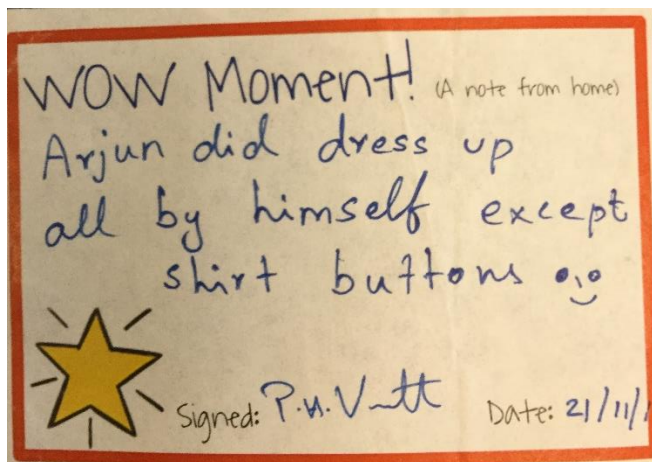 WOW Moment! (A note from home)
Arjun did dress up
all by himself except
shirt buttons
Signed:
Date: 21/11/